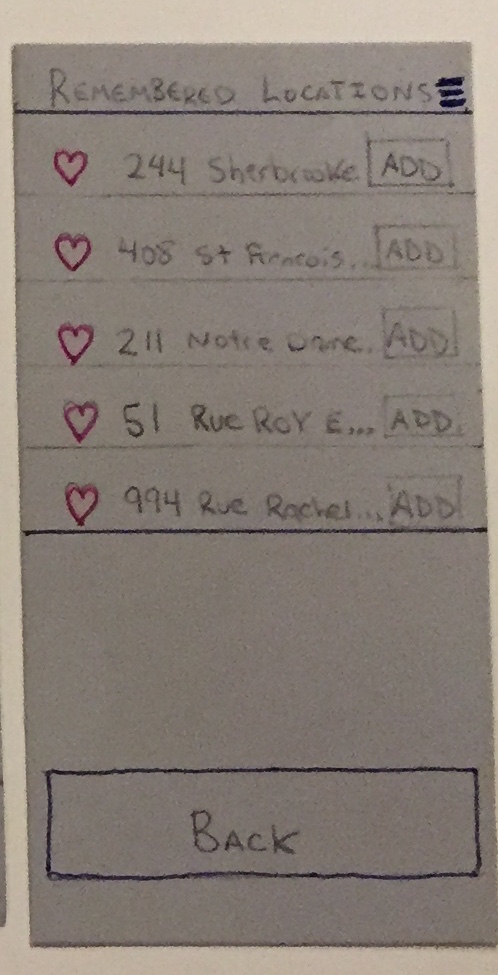 REMEMBERED LOCATIONS
244 Sherbrooke ADD
408 St Francois... ADD
211 Notre Dame. ADD
51 Rue ROY E... ADD
994 Rue Rachel... ADD
BACK